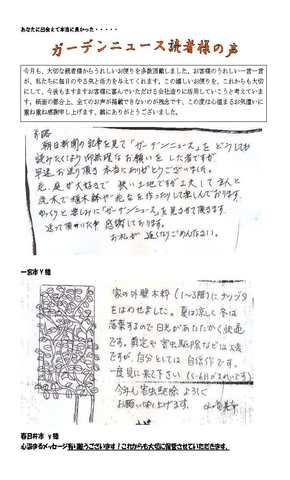 あなたに出会えて本当に良かった・・・・・
ガーデンニュース読者様の声
今月も、大切な読者様からうれしいお便りを多数頂戴しました。お客様のうれしい一言一言
が、私たちに毎日のやる気と活力を与えてくれます。この嬉しいお便りを、これからも大切
にして、今後もますますお客様に喜んでいただける会社造りに活用していこうと考えていま
す。紙面の都合上、全てのお声が掲載できないのが残念です。この度は心温まるお気遣いに
重ね重ね感謝申し上げます。誠にありがとうございました。
前略
朝日新聞の記事を見て「ガーデンニュース」をどうしても
読みたくなり 御無理なお願いをした者ですが
早速お送り頂き 本当にありがとうございました。
花、庭が大好きで 狭い土地ですが工夫して 主人と
洗米で植木鉢や花などを作ったりして楽しんでおります。
ゆっくりと楽しみに「ガーデンニュース」を見させて頂きます。
送って頂けた事 感謝しております。
お礼が遅くなりごめんなさい。
一宮市Y様
家の外壁木枠(1〜3階)にナツヅタ
をはわせました。夏は涼しく冬は
落葉するので日光があたたかく快適
です。剪定や害虫駆除などは大変
ですが、自分としては自信作です。
一度見に来て下さい(5〜6月がきれいです)
今年も害虫駆除よろしく
お願い申し上げます。
春日井市 y様
心温まるメッセージ有り難うございます!これからも大切に保管させていただきます。